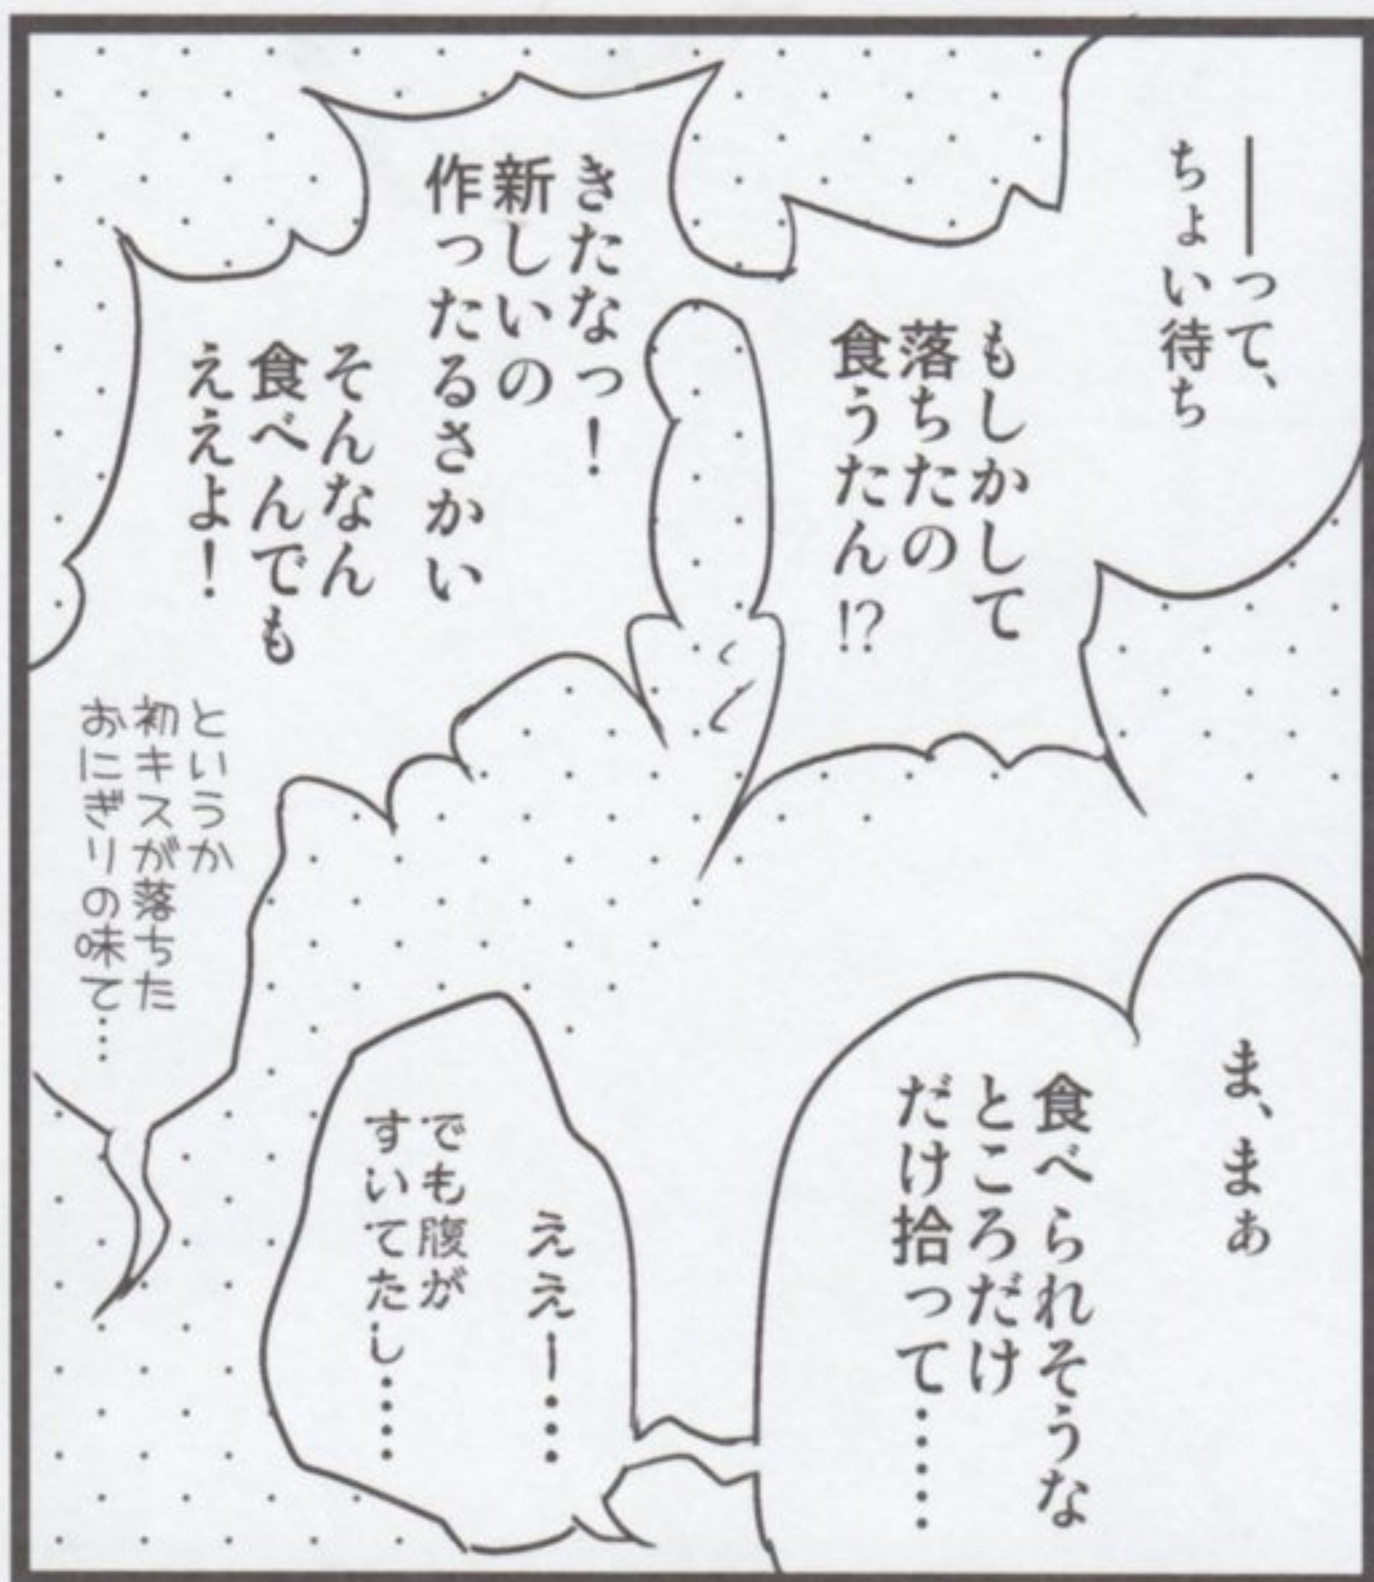 ――って、
ちょい待ち
もしかして
落ちたの
食うたん!?
きたなっ！
新しいの
作ったるさかい
そんなん
食べんでも
ええよ！
というか
初キスが落ちた
おにぎりの味て…
ま、まぁ
食べられそうな
ところだけ
だけ拾って……
ええー…
でも腹が
すいてたし……